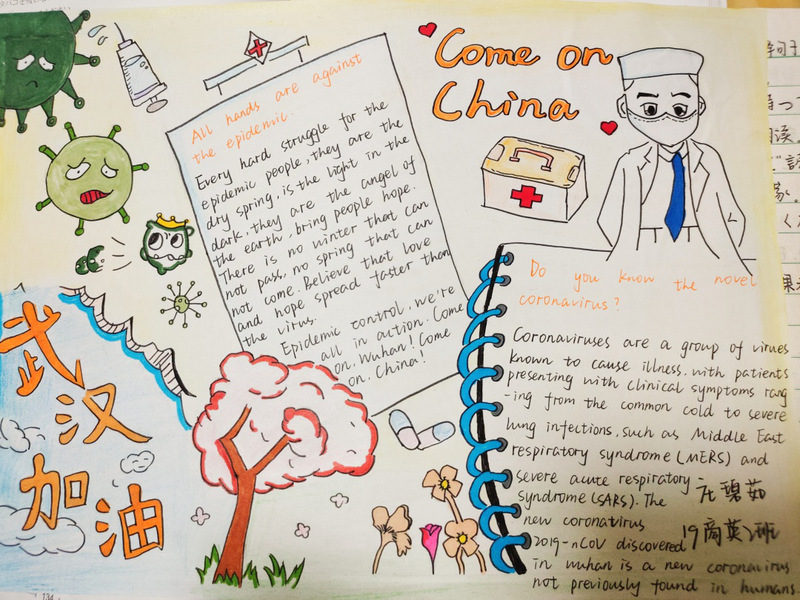 Come on
China
All hands are against
the epidemic.
Every hard struggle for the
epidemic people, they are the
dry spring, is the light in the
dark, they are the angel of
the earth, bring people hope.
There is no winter that can
not pass, no spring that can
not come. Believe that love
and hope spread faster than
the virus.
Epidemic control, we're
all in action. Come
on, Wuhan! Come
on, China!
武
汉
加
油
Do you know the novel
coronavirus?
Coronaviruses are a group of virues
known to cause illness. with patients
presenting with clinical symptoms rang
-ing from the common cold to severe
lung infections, such as Middle East
respiratory syndrome (MERS) and
severe acute respiratory
syndrome (SARS). The
new coronatirus
2019-nCoV discovered
in wuhan is a new coronavirus
not previously found in humans
碧茹
19商英2班
134